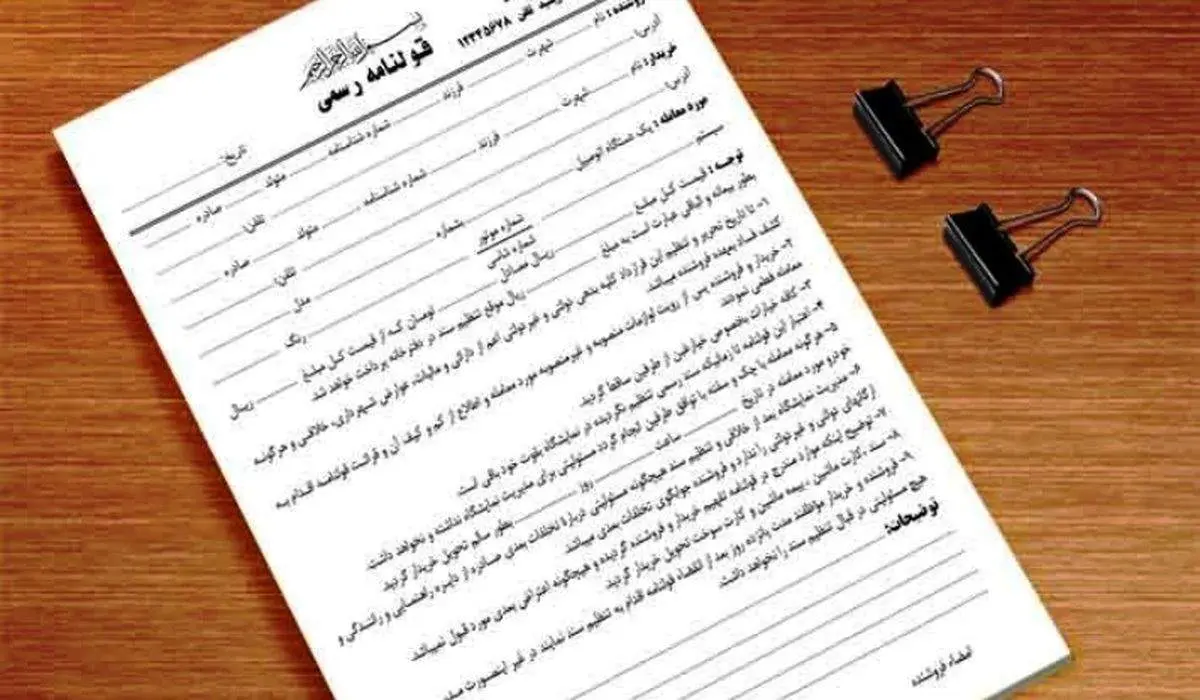 بسم الله الرحمن الرحیم
قولنامه رسمی
تلفن ۱۲۳۴۵۶۷۸
تاریخ:
فروشنده: نام شهرت فرزند شماره شناسنامه متولد صادره
آدرس: تلفن:
خریدار: نام شهرت فرزند شماره شناسنامه متولد صادره
آدرس: تلفن:
مورد معامله: یک دستگاه اتومبیل شماره مدل رنگ
سیستم شماره موتور
شماره شاسی
توجه: قیمت کل مبلغ ریال معادل تومان که از قیمت کل مبلغ ریال
بطور بیعانه و الباقی عبارت است به مبلغ ریال موقع تنظیم سند در دفترخانه پرداخت خواهد شد.
۱- تا تاریخ تحریر و تنظیم این قرارداد کلیه بدهی دولتی و غیردولتی اعم از دارائی و مالیات، عوارض شهرداری، خلافی و هرگونه
کشف فساد بعهده فروشنده میباشد.
۲- خریدار و فروشنده پس از رویت لوازمات منصوبه و غیرمنصوبه مورد معامله و اطلاع از کم و کیف آن و قرائت قولنامه اقدام به
معامله قطعی نمودند.
۳- کافه خیارات بخصوص خیارغبن از طرفین ساقط گردید.
۴- اعتبار این قولنامه تا زمانیکه سند رسمی تنظیم نگردیده در نمایشگاه بقوت خود باقی است.
۵- هرگونه معامله با چک و سفته با توافق طرفین انجام گردد مسئولیتی برای مدیریت نمایشگاه نداشته و نخواهد داشت.
خودرو مورد معامله در تاریخ ساعت روز بطور سالم تحویل خریدار گردید
۶- مدیریت نمایشگاه بعد از خلافی و تنظیم سند هیچگونه مسئولیتی درباره تخلفات بعدی صادره از دایره راهنمایی و رانندگی و
ارگانهای دولتی و غیردولتی را ندارد و فروشنده جوابگوی تخلفات بعدی میباشد.
۷- توضیح اینکه موارد مندرج در قولنامه تفهیم خریدار و فروشنده گردیده و هیچگونه اعتراض بعدی مورد قبول نمیباشد.
۸- سند، کارت ماشین، بیمه ماشین و کارت سوخت تحویل خریدار گردید.
۹- فروشنده و خریدار مؤظفند مدت پانزده روز بعد از انقضاء قولنامه اقدام به تنظیم سند نمایند در غیر اینصورت
هیچ مسئولیتی در قبال تنظیم سند را نخواهد داشت.
توضیحات:
امضاء فروشنده